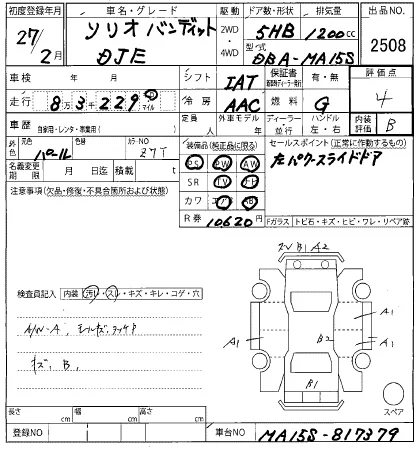 初度登録年月 車名・グレード 駆動 ドア数・形状 排気量 出品NO.
27/2月 ソリオ バンディット 2WD・4WD 5HB 1200cc 2508
DJE 型式 DBA-MA15S
車検 年 月 シフト IAT 保証書 有・無 評価点
走行 8万3千229 マイル 冷房 AAC 燃料 G 4
車歴 自家用・レンタ・事業用( ) 定員 人 外車モデル 年 ディーラー・並行 ハンドル 左・右 内装評価 B
外色 元色 パール 色替 カラーNO Z7T
装備品(純正品に限る) セールスポイント(正常に作動するもの)
名義変更期限 月 日迄 積載 t
PS PW AW 左パワースライドドア
SR TV ナビ
カワ エアB AB
R券 10620円
注意事項(欠品・修復・不具合箇所および状態)
Fガラス トビ石・キズ・ヒビ・ワレ・リペア跡
B1 A2
検査員記入 内装 汚レ・スレ・キズ・キレ・コゲ・穴
A1
A/W-A
A1 B2 A1
キズ、B、
B1
スペア
長さ cm 幅 cm 高さ cm
登録NO 車台NO MA15S-817379